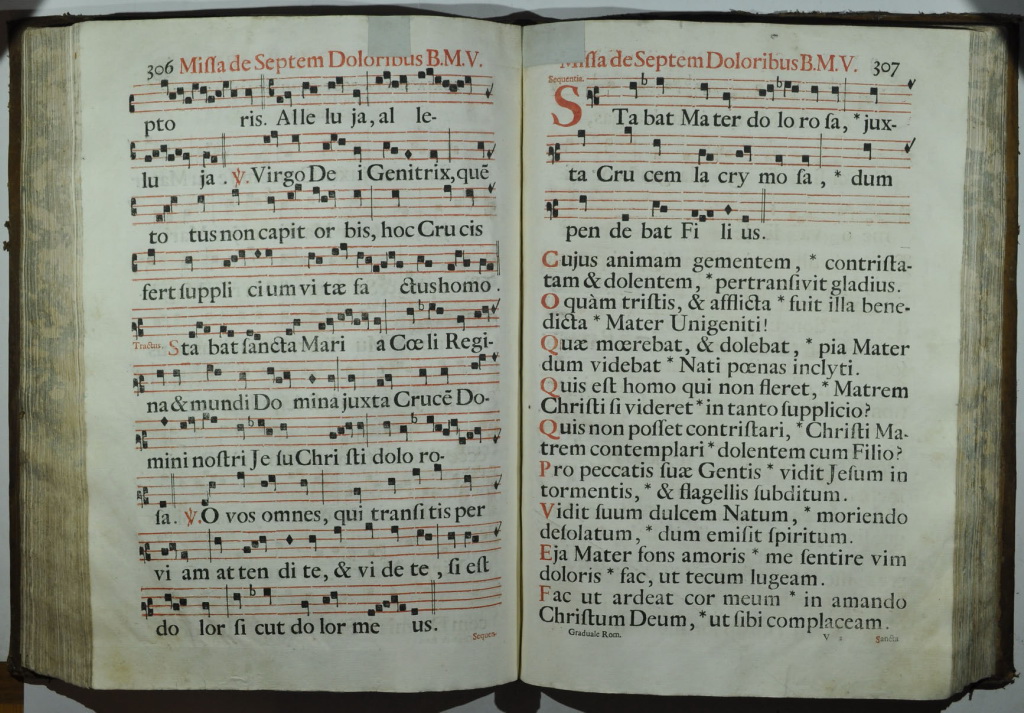 306 Miſſa de Septem Doloribus B.M.V.
pto ris. Alle lu ja, al le-
lu ja. ℣. Virgo De i Genitrix, quẽ
to tus non capit or bis, hoc Cru cis
fert ſuppli ci um vi tæ ſa ctus homo.
Tractus. Sta bat ſancta Mari a Cœ li Regi-
na & mundi Do mina juxta Crucẽ Do-
mini noſtri Je ſu Chri ſti dolo ro-
ſa. ℣. O vos omnes, qui tranſi tis per
vi am at ten di te, & vi de te, ſi eſt
do lor ſi cut do lor me us.
Sequen-
Miſſa de Septem Doloribus B.M.V. 307
Sequentia.
STa bat Ma ter do lo ro ſa, * jux-
ta Cru cem la cry mo ſa, * dum
pen de bat Fi li us.
Cujus animam gementem, * contriſta-
tam & dolentem, * pertranſivit gladius.
O quàm triſtis, & afflicta * fuit illa bene-
dicta * Mater Unigeniti!
Quæ mœrebat, & dolebat, * pia Mater
dum videbat * Nati pœnas inclyti.
Quis eſt homo qui non fleret, * Matrem
Chriſti ſi videret * in tanto ſupplicio?
Quis non poſſet contriſtari, * Chriſti Ma-
trem contemplari * dolentem cum Filio?
Pro peccatis ſuæ Gentis * vidit Jeſum in
tormentis, * & flagellis ſubditum.
Vidit ſuum dulcem Natum, * moriendo
deſolatum, * dum emiſit ſpiritum.
Eja Mater fons amoris * me ſentire vim
doloris * fac, ut tecum lugeam.
Fac ut ardeat cor meum * in amando
Chriſtum Deum, * ut ſibi complaceam.
Graduale Rom. V 2 Sancta